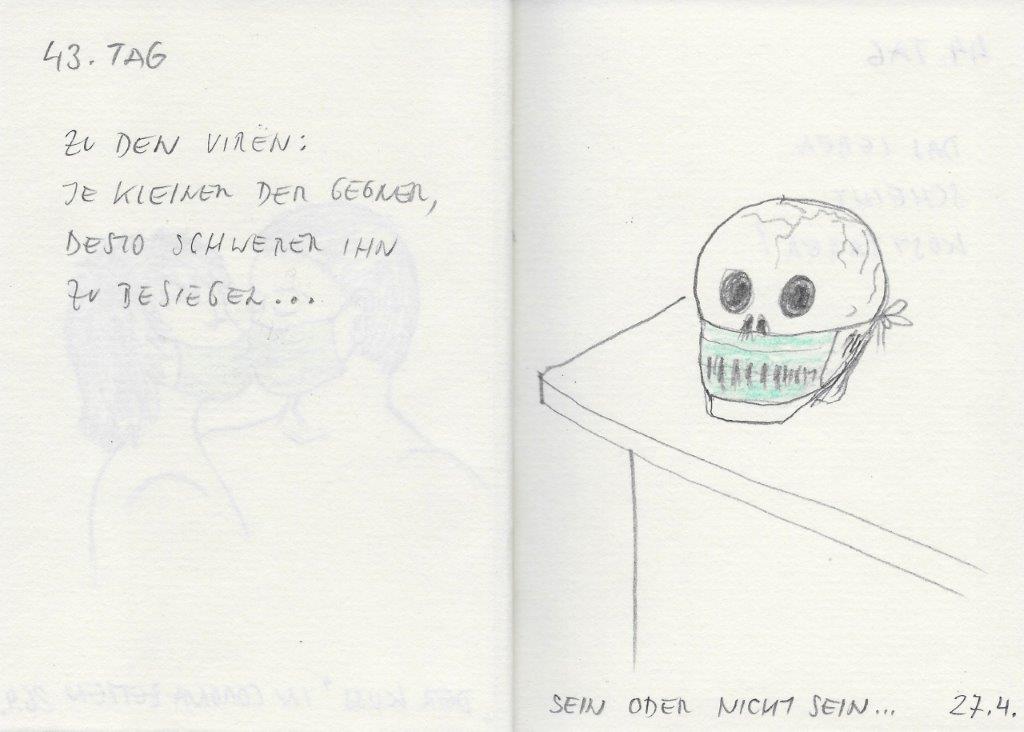 43. TAG
ZU DEN VIREN:
JE KLEINER DER GEGNER,
DESTO SCHWERER IHN
ZU BESIEGEN...
SEIN ODER NICHT SEIN... 27.4.